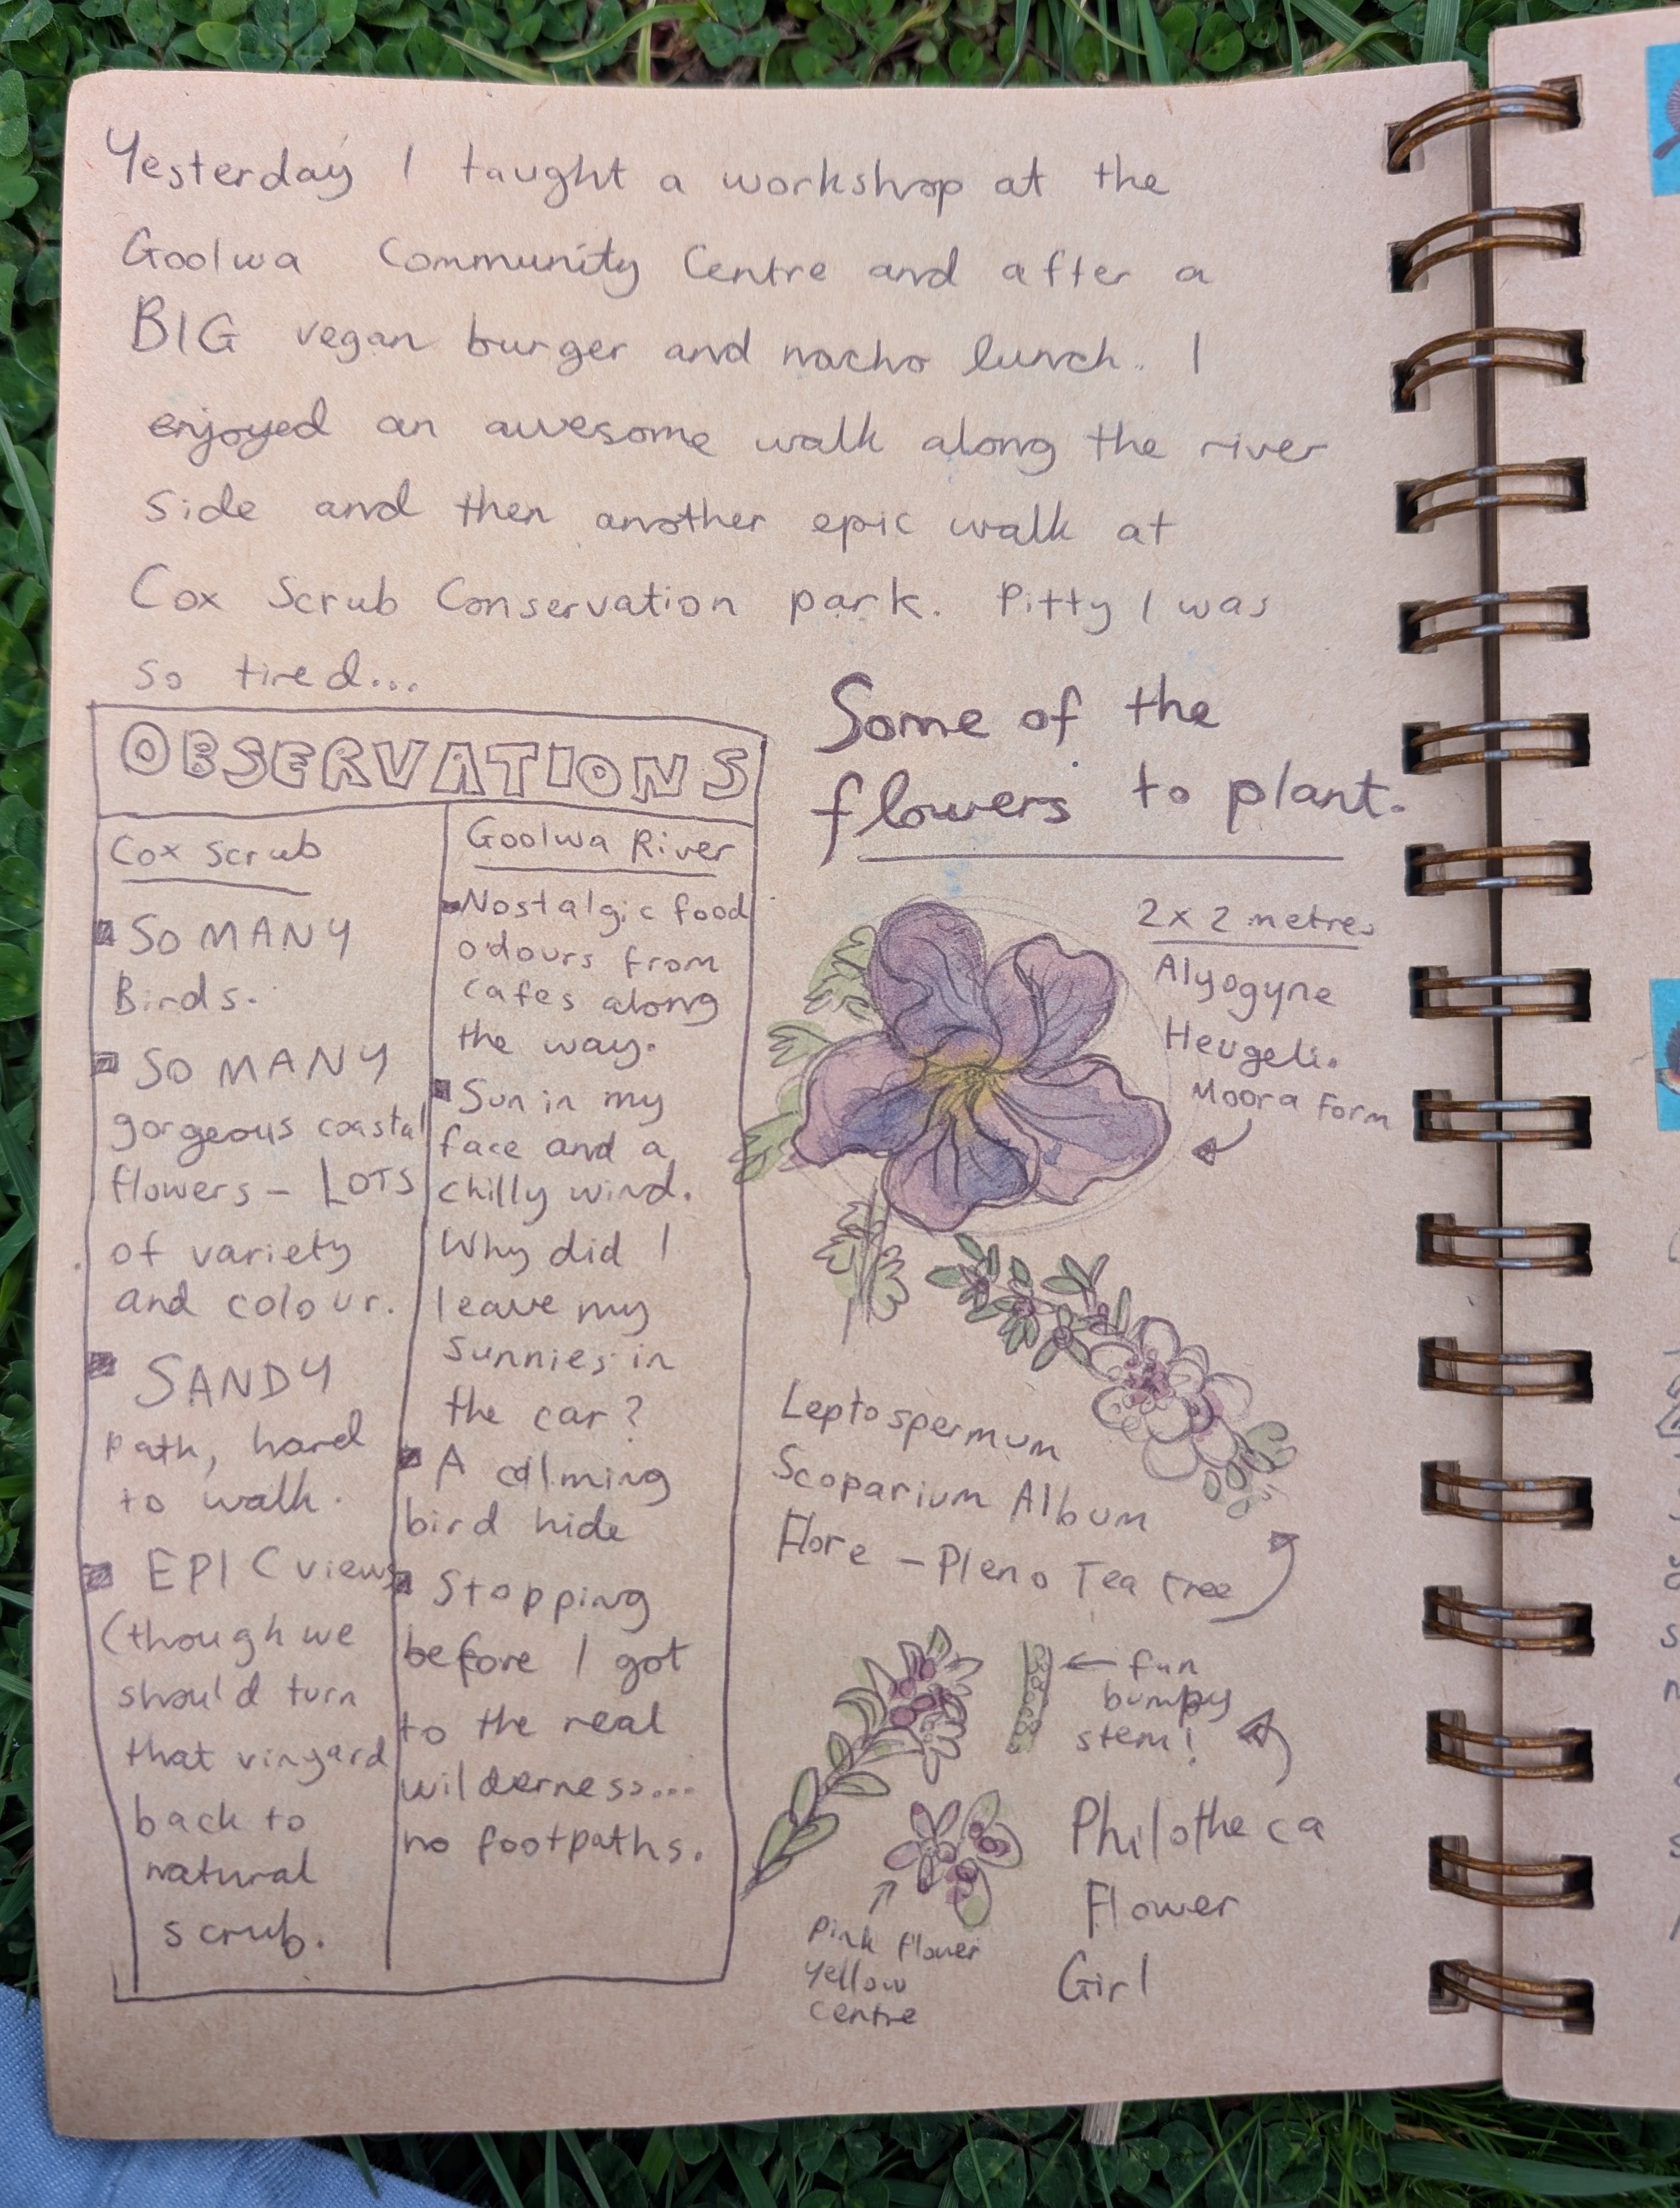 Yesterday I taught a workshop at the
Goolwa Community Centre and after a
BIG vegan burger and nacho lunch. I
enjoyed an awesome walk along the river
side and then another epic walk at
Cox Scrub Conservation park. Pitty I was
so tired...
OBSERVATIONS
Cox Scrub
SO MANY
Birds.
SO MANY
gorgeous coastal
flowers - LOTS
of variety
and colour.
SANDY
path, hard
to walk.
EPIC views
(though we
should turn
that vinyard
back to
natural
scrub.
Goolwa River
Nostalgic food
odours from
cafes along
the way.
Sun in my
face and a
chilly wind.
Why did I
leave my
sunnies in
the car?
A calming
bird hide
Stopping
before I got
to the real
wilderness...
no footpaths.
Some of the
flowers to plant.
2 x 2 metres
Alyogyne
Heugeli.
Moora Form
Leptospermum
Scoparium Album
Flore - Pleno Tea tree
fun
bumpy
stem!
Philotheca
Flower
Girl
Pink flower
yellow
centre